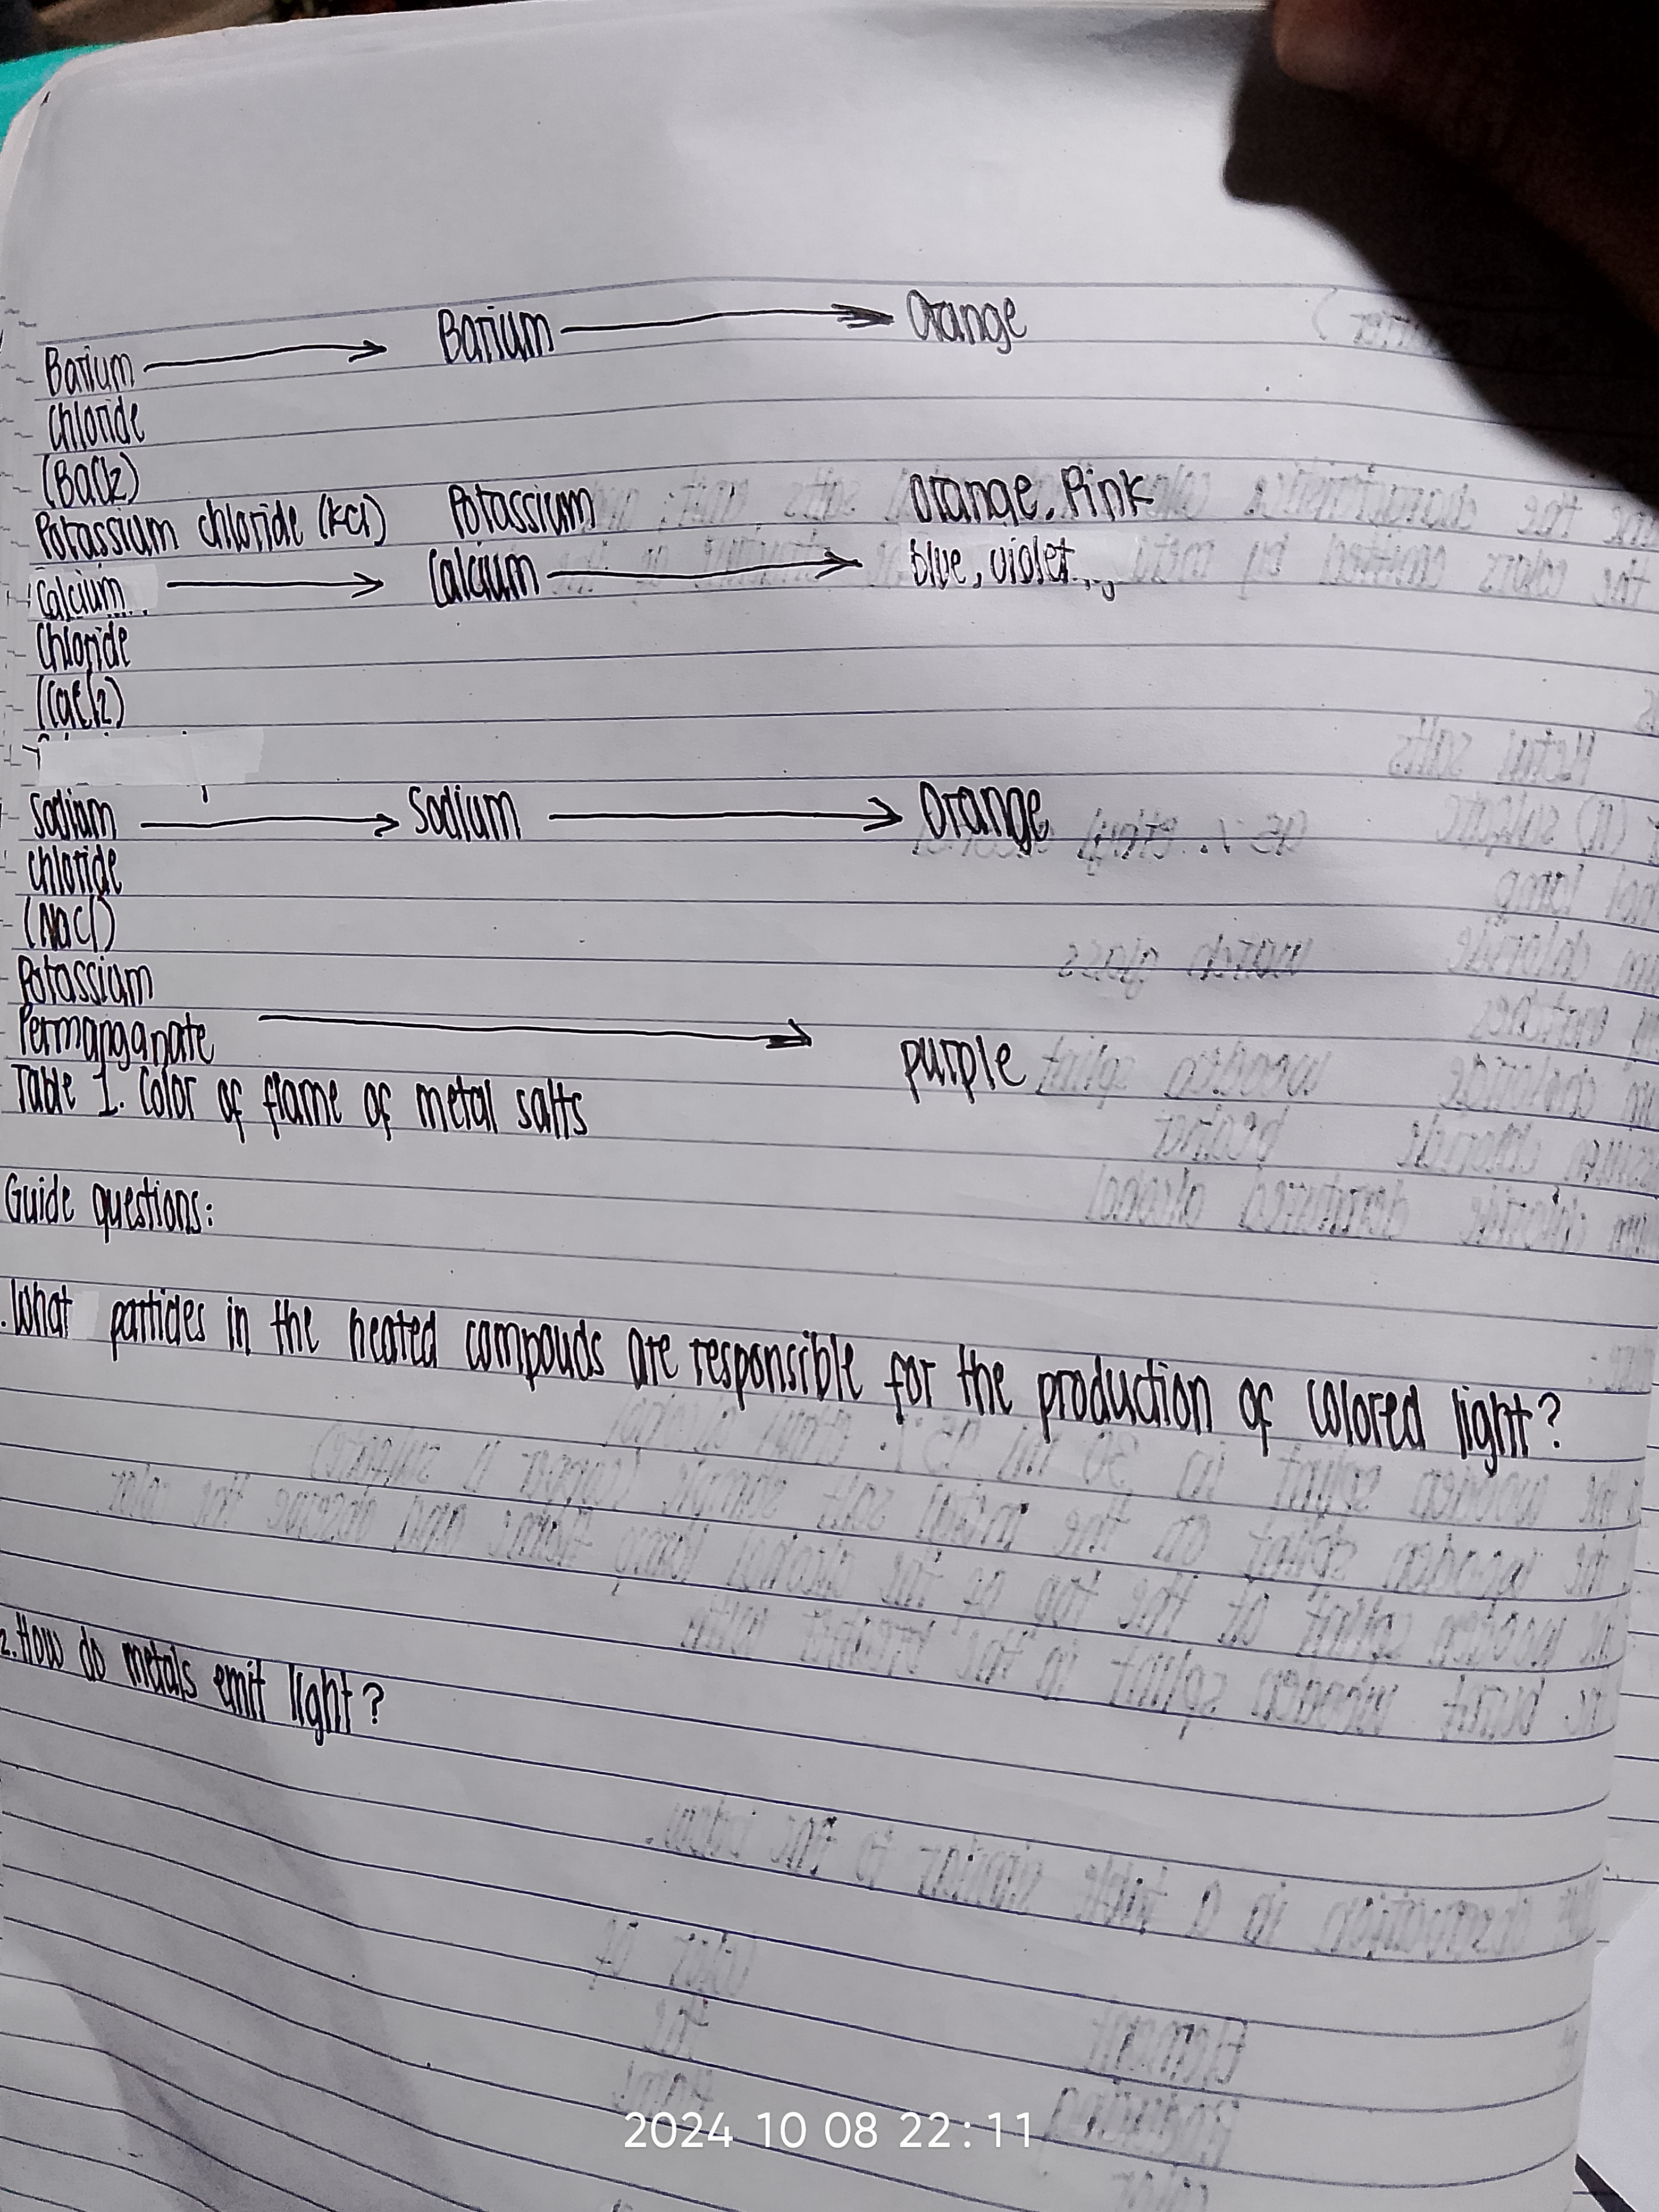 Barium → Barium → Orange
Chloride
(BaCl2)
Potassium chloride (KCl) Potassium Orange, Pink
Calcium → Calcium → blue, violet
Chloride
(CaCl2)
Sodium → Sodium → Orange
chloride
(NaCl)
Potassium
Permanganate → purple
Table 1. Color of flame of metal salts
Guide questions:
.What particles in the heated compouds are responsible for the production of colored light?
2.How do metals emit light?
2024 10 08 22:11